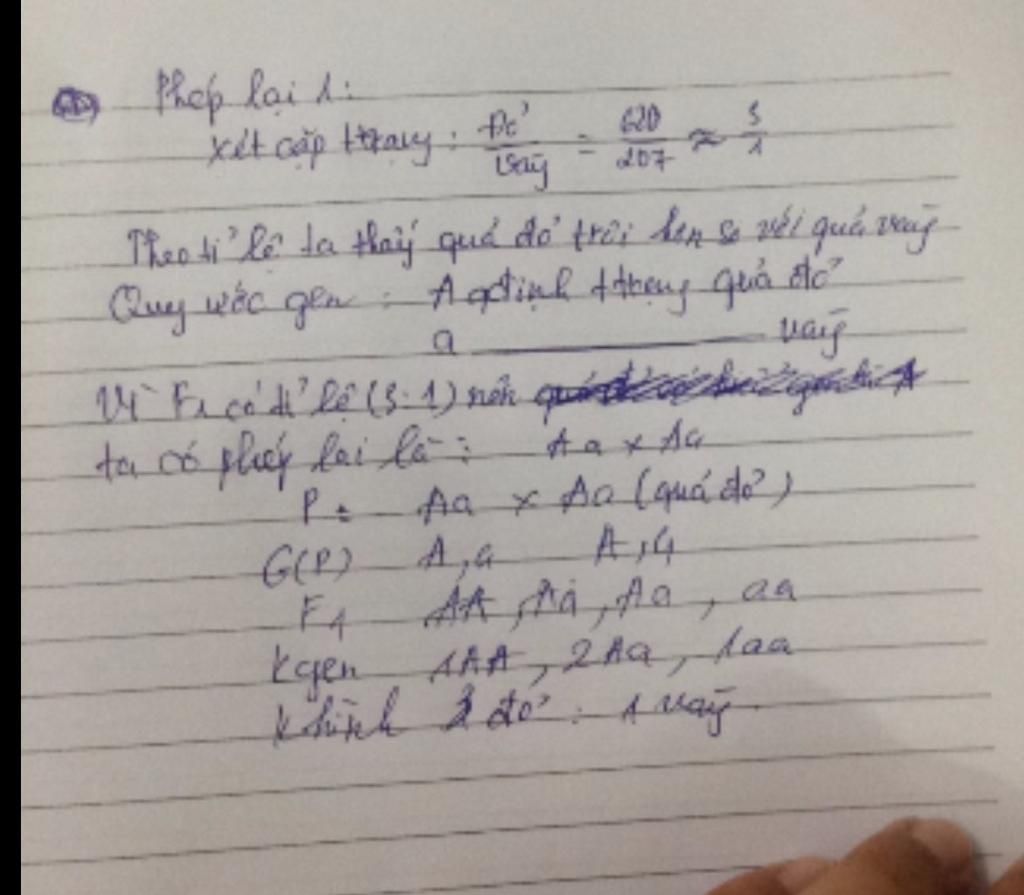 Phép lai 1:
Xét cặp ttrạng: Đỏ/Vàng = 620/207 ≈ 3/1
Theo tỉ lệ ta thấy quả đỏ trội hơn so với quả vàng
Quy ước gen: A qđịnh ttrạng quả đỏ
a ———— vàng
Vì F1 có tỉ lệ (3:1) nên
ta có phép lai là: Aa x Aa
P: Aa x Aa (quả đỏ)
G(P) A, a A, a
F1 AA, Aa, Aa, aa
Kgen 1AA, 2Aa, 1aa
Khình 3 đỏ: 1 vàng.